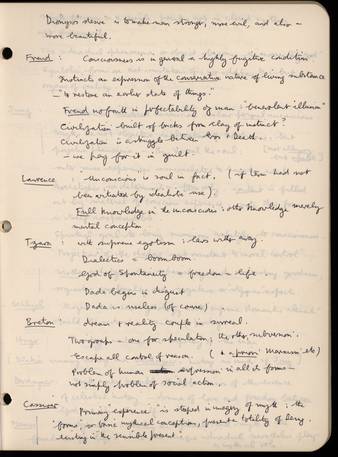 Dionysus' desire is to make man stronger, more evil, and also –
more beautiful.
Freud : Consciousness is in general a highly fugitive condition
Instincts an expression of the conservative nature of living substance
– "to restore an earlier state of things."
Freud no faith in perfectability of man : "benevolent illusion"
Civilization built of bricks from clay of instinct?
Civilization is struggle between Eros & Death.
– we pay for it in guilt.
Lawrence : Unconscious is soul in fact. (if term had not
been vitiated by idealistic use)
Full knowledge in the unconscious : other knowledge merely
mental conception
Tzara : with supreme egotism ; laws wither away.
Dialectics = boomboom
God of Spontaneity = freedom = life
Dada begins in disgust
Dada is useless (of course).
Breton : dream & reality couple in surreal.
Two groups – one for speculation ; the other, subversion.
Escape all control of reason. (& a priori Marxism etc)
Problem of human expression in all its forms –
not simply problem of social action.
Cassirer "Primary experience" is steeped in imagery of myth ; the
forms, or basic mythical conceptions, present a totality of being
in the sensible present.